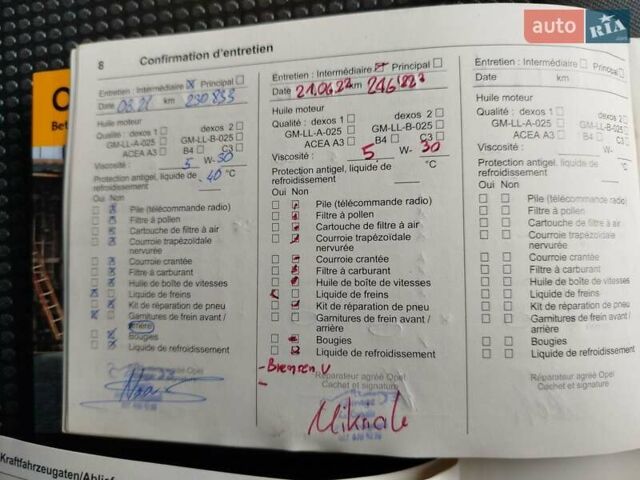 auto RIA.com
8 Confirmation d'entretien
Entretien : Intermédiaire Principal
Date 03.21 km 230 833
Huile moteur
Qualité : dexos 1 dexos 2
GM-LL-A-025 GM-LL-B-025
ACEA A3 B4 C3
Viscosité : 5 W- 30
Protection antigel, liquide de refroidissement -40 °C
Oui Non
Pile (télécommande radio)
Filtre à pollen
Cartouche de filtre à air
Courroie trapézoïdale
nervurée
Courroie crantée
Filtre à carburant
Huile de boîte de vitesses
Liquide de freins
Kit de réparation de pneu
Garnitures de frein avant /
arrière
Bougies
Liquide de refroidissement
Entretien : Intermédiaire Principal
Date 21.06.22 km 246 883
Huile moteur
Qualité : dexos 1 dexos 2
GM-LL-A-025 GM-LL-B-025
ACEA A3 B4 C3
Viscosité : 5 W- 30
Protection antigel, liquide de
refroidissement °C
Oui Non
Pile (télécommande radio)
Filtre à pollen
Cartouche de filtre à air
Courroie trapézoïdale
nervurée
Courroie crantée
Filtre à carburant
Huile de boîte de vitesses
Liquide de freins
Kit de réparation de pneu
Garnitures de frein avant /
arrière
Bougies
Liquide de refroidissement
- Bremsen V
Réparateur agréé Opel
Cachet et signature
Entretien : Intermédiaire Principal
Date km
Huile moteur
Qualité : dexos 1 dexos 2
GM-LL-A-025 GM-LL-B-025
ACEA A3 B4 C3
Viscosité : W-
Protection antigel, liquide de
refroidissement °C
Oui Non
Pile (télécommande radio)
Filtre à pollen
Cartouche de filtre à air
Courroie trapézoïdale
nervurée
Courroie crantée
Filtre à carburant
Huile de boîte de vitesses
Liquide de freins
Kit de réparation de pneu
Garnitures de frein avant /
arrière
Bougies
Liquide de refroidissement
Réparateur agréé Opel
Cachet et signature